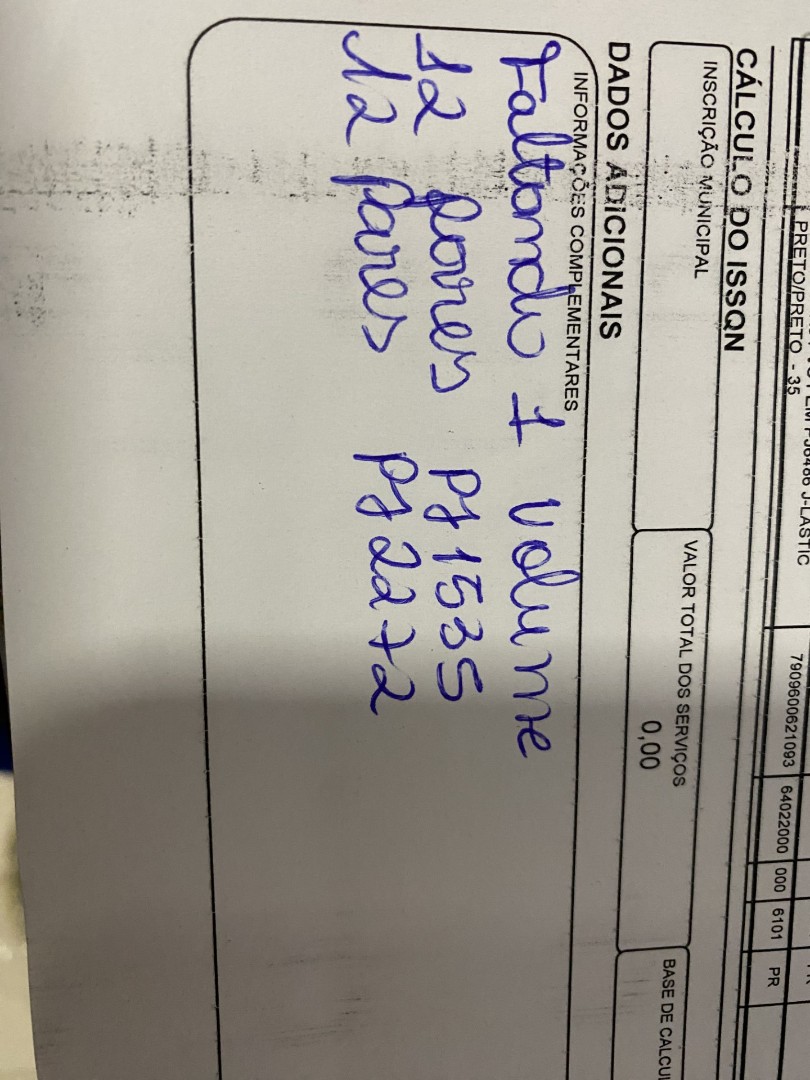 PJ6486 J-LASTIC
PRETO/PRETO - 35
7909600621093 64022000 000 6101 PR
CÁLCULO DO ISSQN
INSCRIÇÃO MUNICIPAL
VALOR TOTAL DOS SERVIÇOS
0,00
BASE DE CÁLCU
DADOS ADICIONAIS
INFORMAÇÕES COMPLEMENTARES
Faltando 1 volume
12 pares PJ 1535
12 pares PJ 2272